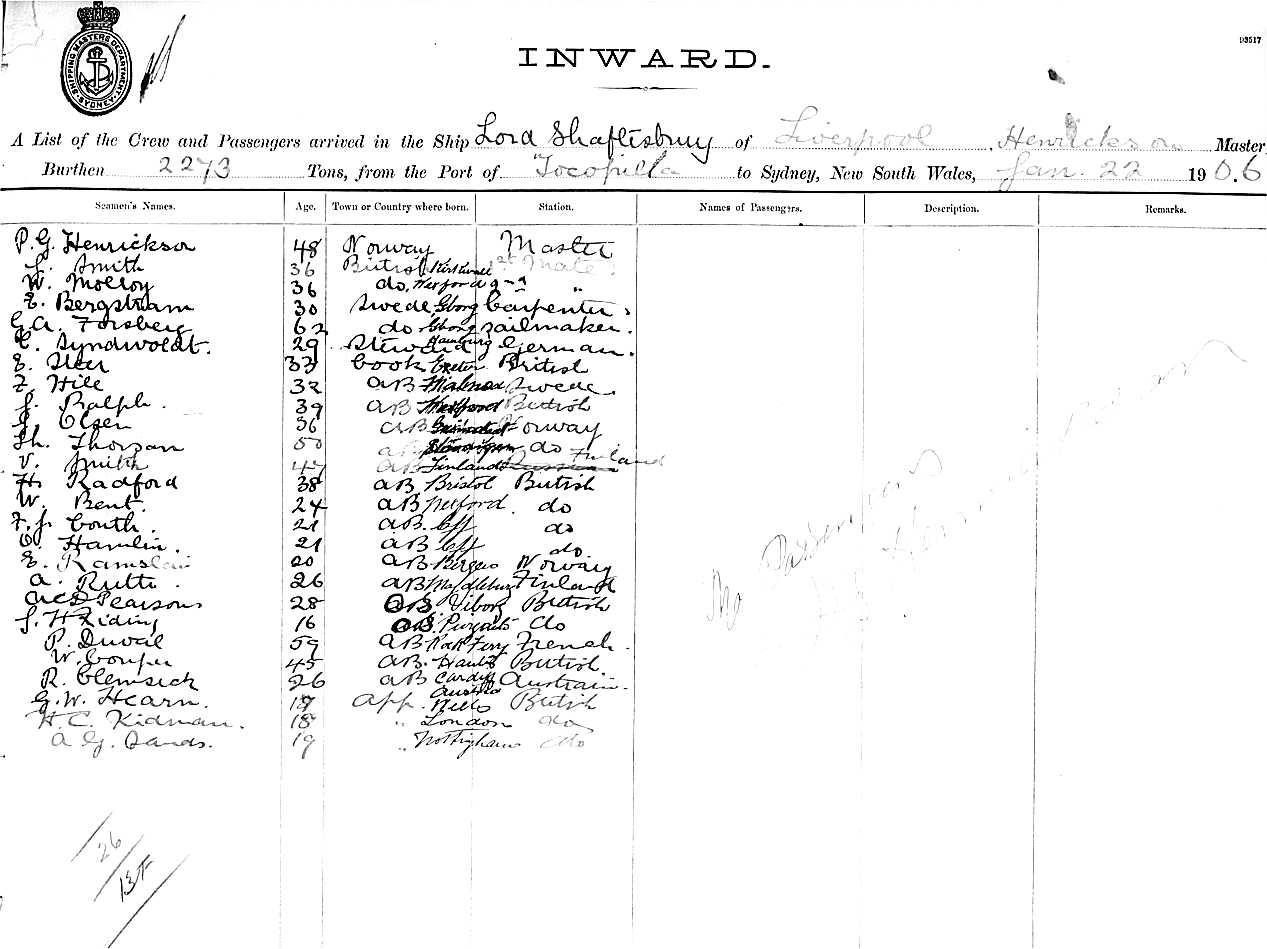 SHIPPING MASTERS DEPARTMENT. SYDNEY.
93517
INWARD.
A List of the Crew and Passengers arrived in the Ship Lord Shaftesbury of Liverpool. Henrickson Master
Burthen 2273 Tons, from the Port of Tocopilla to Sydney, New South Wales, Jan. 22 190.6
Seamen's Names. Age. Town or Country where born. Station. Names of Passengers. Description. Remarks.
P. G. Henrickson 48 Norway Master
J. Smith 36 British Kirkwall 1st Mate.
W. Molloy 36 do, Wexford 2nd "
E. Bergstram 30 Swede, Gborg Carpenter.
G.A. Forsberg 62 do Gborg sailmaker.
C. Syndwoldt. 29 Steward Hamburg German.
E. Steer 33 Cook Exeter British
F. Hill 32 AB Swede
J. Ralph. 39 AB British
J. Olsen 36 AB Norway
Th. Thorsan 50 AB do
V. Smith 47 AB Finland Finland
H. Radford 38 AB Bristol British
W. Bent. 24 AB do
F. J. Couth. 21 AB. do
O. Hamlin. 21 AB do
E. Ramslair 20 AB Bergen Norway
A. Rutti. 26 AB Finland
Pearsons 28 British
J. H Riding 16 do
P. Duval 59 AB French.
W. Couper 45 AB. British.
R. Clemsick 26 AB Cardiff Austrain.
Austria
G. W. Hearn. 18 App. British
H. C. Kidman. 18 " London do
A G. Sands. 19 " Nottingham do
No Passengers
26
13